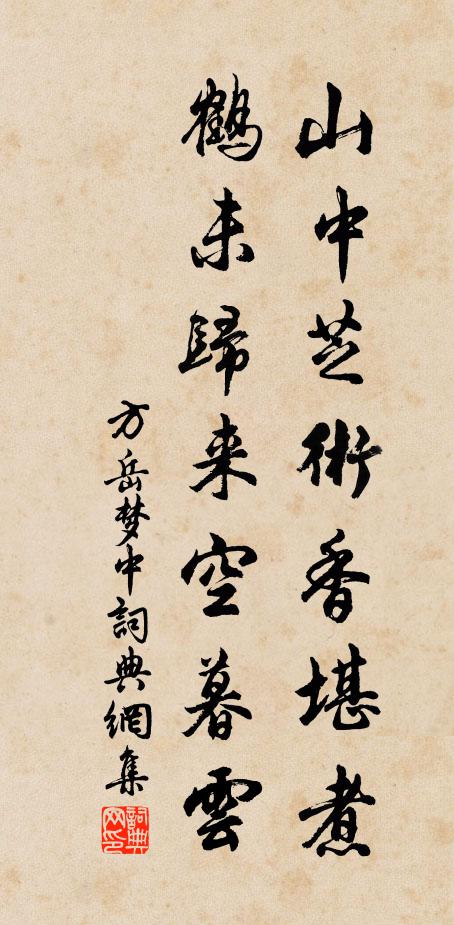 山中芝術香堪煮
鶴未歸来空暮雲
方岳梦中詞典網集
詞典网印